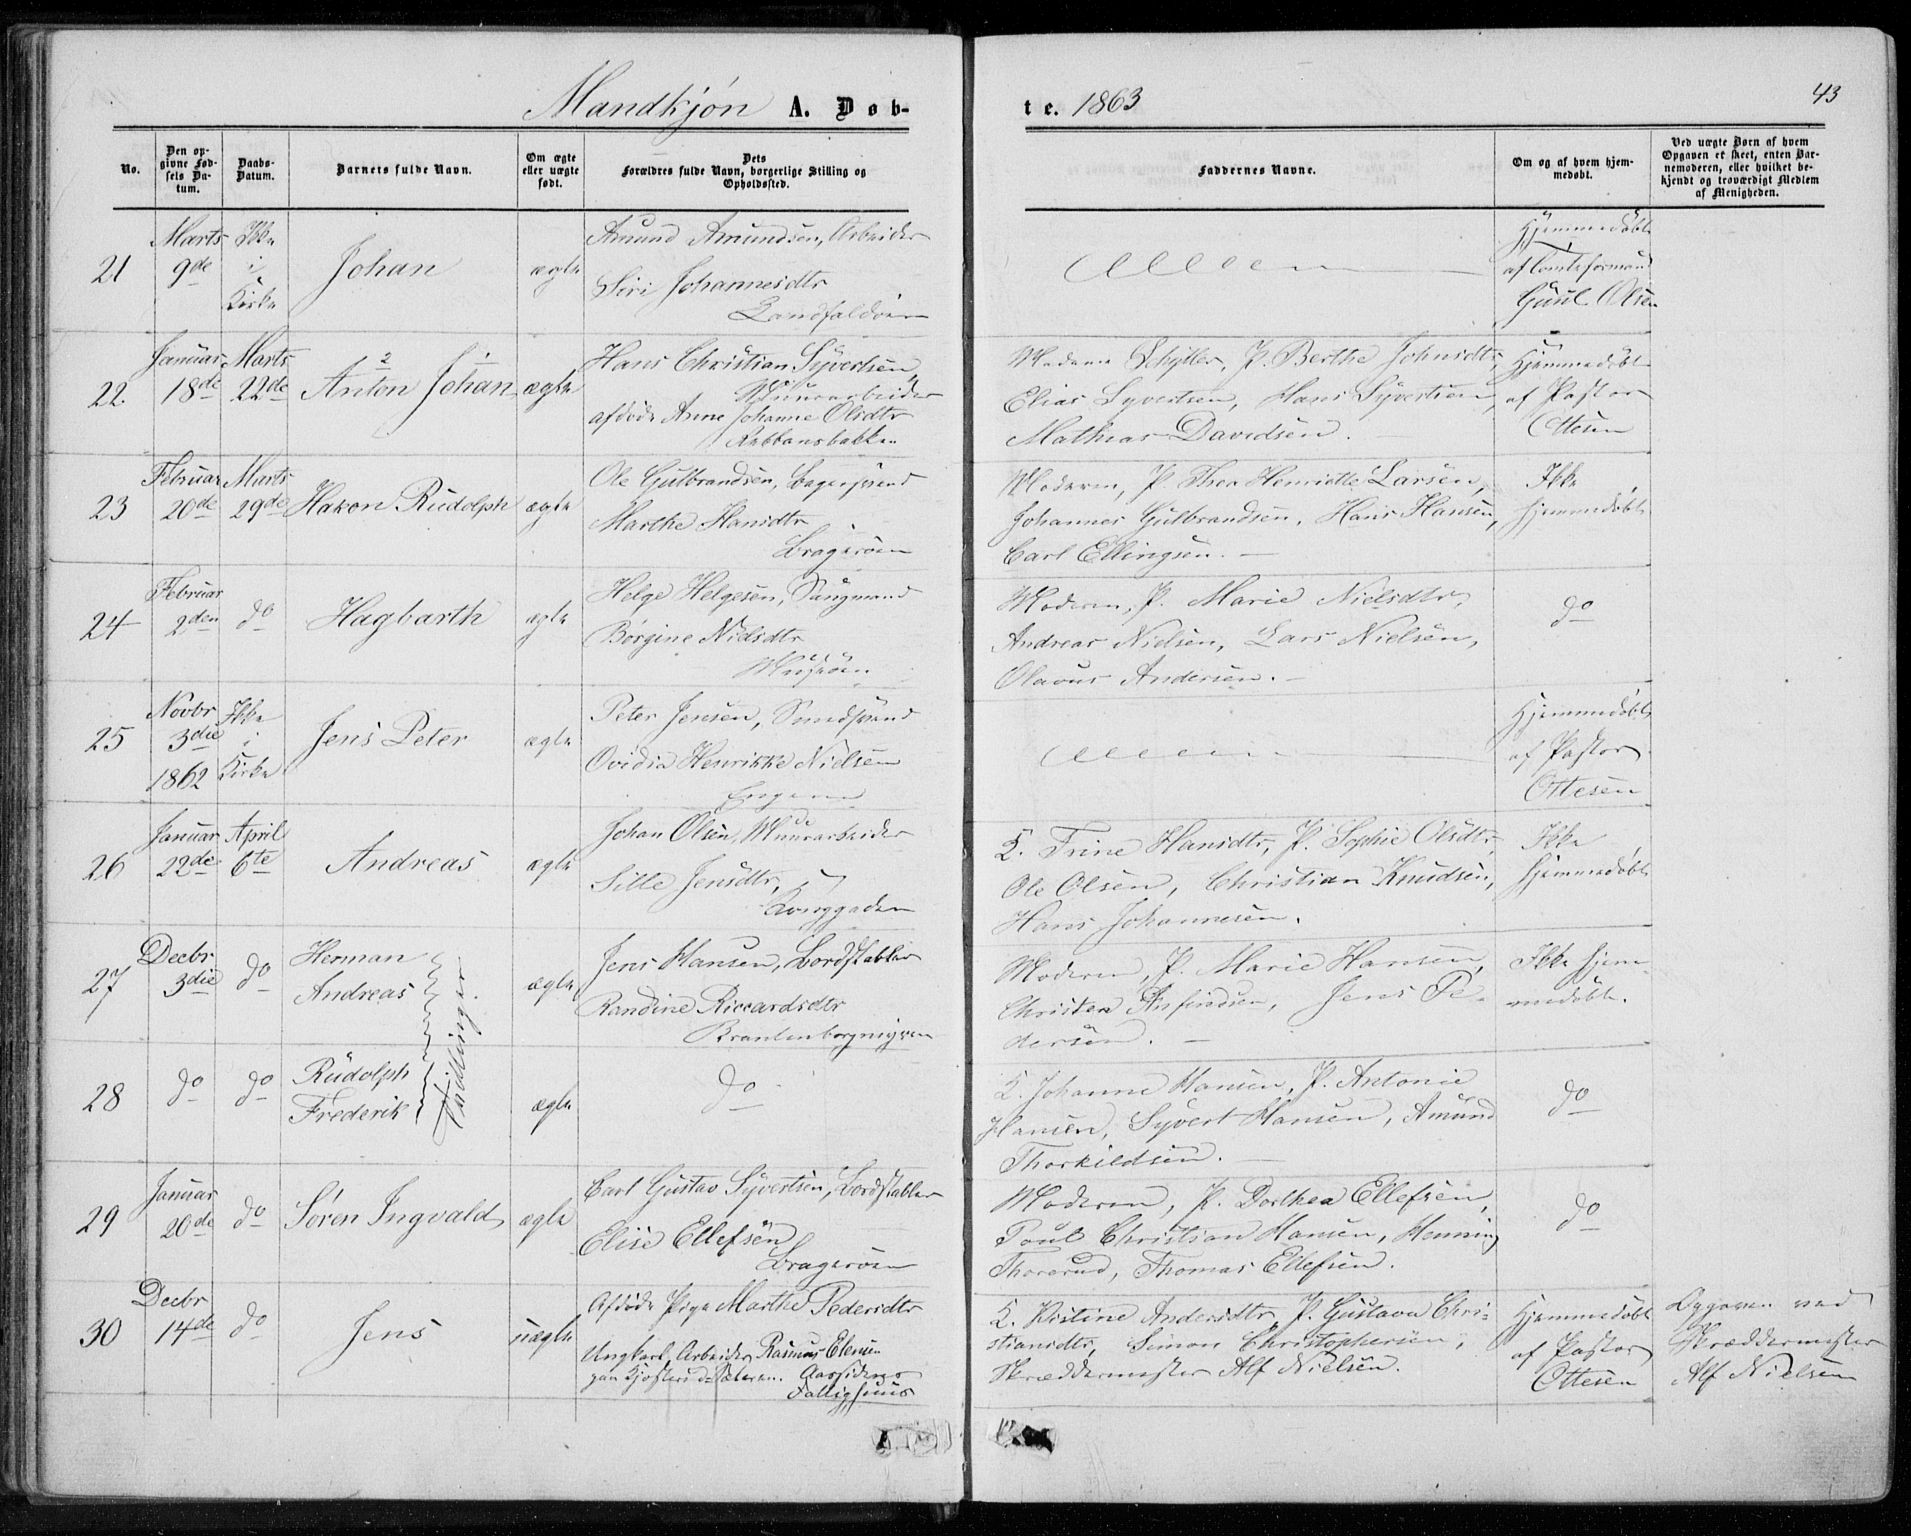 Mandkjøn A. Døb-
No.
Den op-
givne Fød-
sels Da-
tum.
Daabs-
Datum.
Barnets fulde Navn.
Om ægte
eller uægte
født.
Dets
Forældres fulde Navn, borgerlige Stilling og
Opholdssted.
21
Marts
9de
Ikke
i
Kirke
Johan
ægte
Amund Amundsen, Arbeider
Siri Johannesdtr
Landfaldøen
22.
Januar
18de
Marts
22de
2 1
Anton Johan
ægte
Hans Christian Syvertsen,
Muurarbeider
afdøde Anne Johanne Olsdtr
23
Februar
20de
Marts
29de
Hakon Rudolph
ægte
Ole Gulbrandsen, Bagersvend
Marthe Hansdtr
Bragerøen
24
Februar
2den
do
Hagbarth
ægte
Helge Helgesen, Saugmand
Børgine Nielsdtr
25
Novbr
3die
1862
Ikke
i
Kirke
Jens Peter
ægte
Peter Jensen,
Ovidia Henrikke Nielsen
Engene
26
Januar
22de
April
6te
Andreas
ægte
Johan Olsen, Muurarbeider
Sille Jensdtr,
Konggaden
27
Decbr
3die
do
Herman
Andreas
ægte
Jens Hansen, Bordstabler
Randine Riccardsdtr
28
do
do
Rudolph
Frederik
Tvillinger.
ægte
do
29
Januar
20de
do
Søren Ingvald
ægte
Carl Gustav Syvertsen, Bordstabler
Elise Ellefsen
Bragerøen
30
Decbr
14de
do
Jens
uægte
Afdøde Pige Marthe Pedersdtr
Ungkarl, Arbeider Rasmus
te. 1863
43
Faddernes Navne.
Om og af hvem hjem-
medøbt.
Ved uægte Børn af hvem
Opgaven er skeet, enten Bar-
nemoderen, eller hvilket be-
kjendt og troværdigt Medlem
af Menigheden.
Hjemmedøbt
af
Guul Olsen
Madame Schytter, P. Berthe Johnsdtr,
Elias Syvertsen, Hans Syvertsen,
Mathias Davidsen.
Hjemmedøbt
af Pastor
Ottesen
Moderen, P. Thea Henriette Larsen,
Johannes Gulbrandsen, Hans Hansen,
Carl Ellingsen.
Ikke
hjemmedøbt
Moderen, P. Marie Nielsdtr,
Andreas Nielsen, Lars Nielsen,
Olavus Andersen.
do
Hjemmedøbt
af Pastor
Ottesen
K. Trine Hansdtr, P. Sophie Olsdtr,
Ole Olsen, Christian Knudsen,
Hans Johannesen.
Ikke
hjemmedøbt
Moderen, P. Marie Hansen,
Christen Anfindsen, Jens Pe-
dersen.
Ikke hjem-
medøbt.
K. Johanne Hansen, P. Antonie
Hansen, Syvert Hansen, Amund
Thorkildsen.
do
Moderen, P. Dorthea Ellefsen,
Poul Christian Hansen, Henning
Thorerud, Thomas Ellefsen.
do
K. Kistine Andersdtr, P. Gustava Chri-
stiansdtr, Simon Christophersen,
Skræddermester Alf Nielsen.
Hjemmedøbt
af Pastor
Ottesen
Opgaven ved
Skræddermester
Alf Nielsen